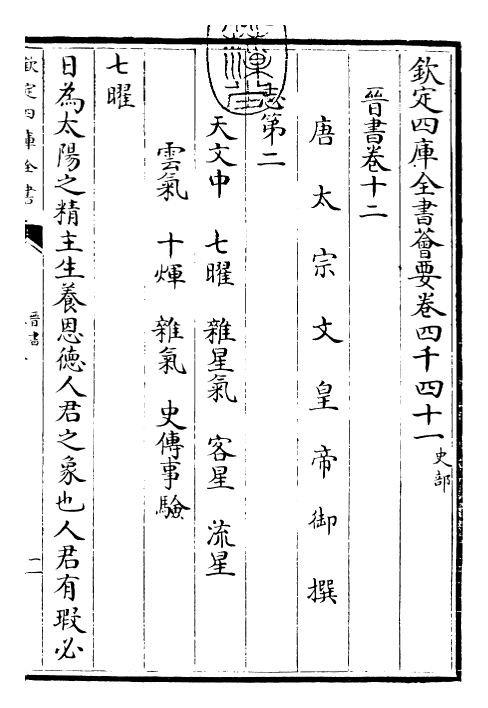 欽定四庫全書薈要卷四千四十一史部
晉書卷十二
唐太宗文皇帝御撰
志第二
天文中 七曜 雜星氣 客星 流星
雲氣 十煇 雜氣 史傳事驗
七曜
日為太陽之精主生養恩德人君之象也人君有瑕必
欽定四庫全書
晉書
一